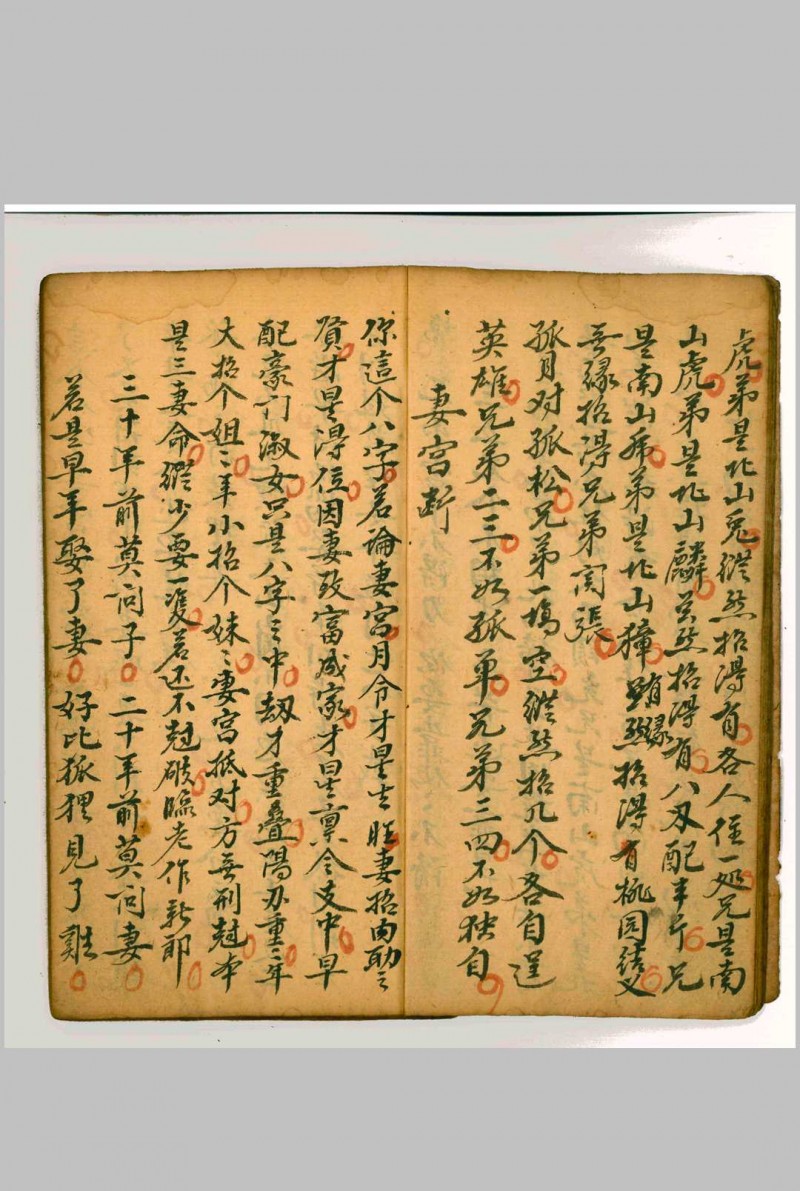 虎弟是北山兎縱然招得有各人住一処兄是南
山虎弟是北山麟縱然招得有八刃配半斤兄
是南山弟是北山獐有緣招得有桃园结义
无缘招得兄弟関張
孤月对孤松兄弟一塲空縱然招几个各自逞
英雄兄弟二三不如孤单兄弟三四不如独自
妻宫断
你這个八字若論妻宫月令才星去旺妻招内助之
賢才星得位因妻致富成家才星禀令支中早
配豪门淑女只是八字之中劫才重叠陽刃重二年
大招个姐二年小招个妹二妻宫抵对方無刑尅本
是三妻命縱少要一隻若还不尅臨老作新郎
三十年前莫问子二十年前莫问妻
若是早年娶了妻好比狐狸見了雞